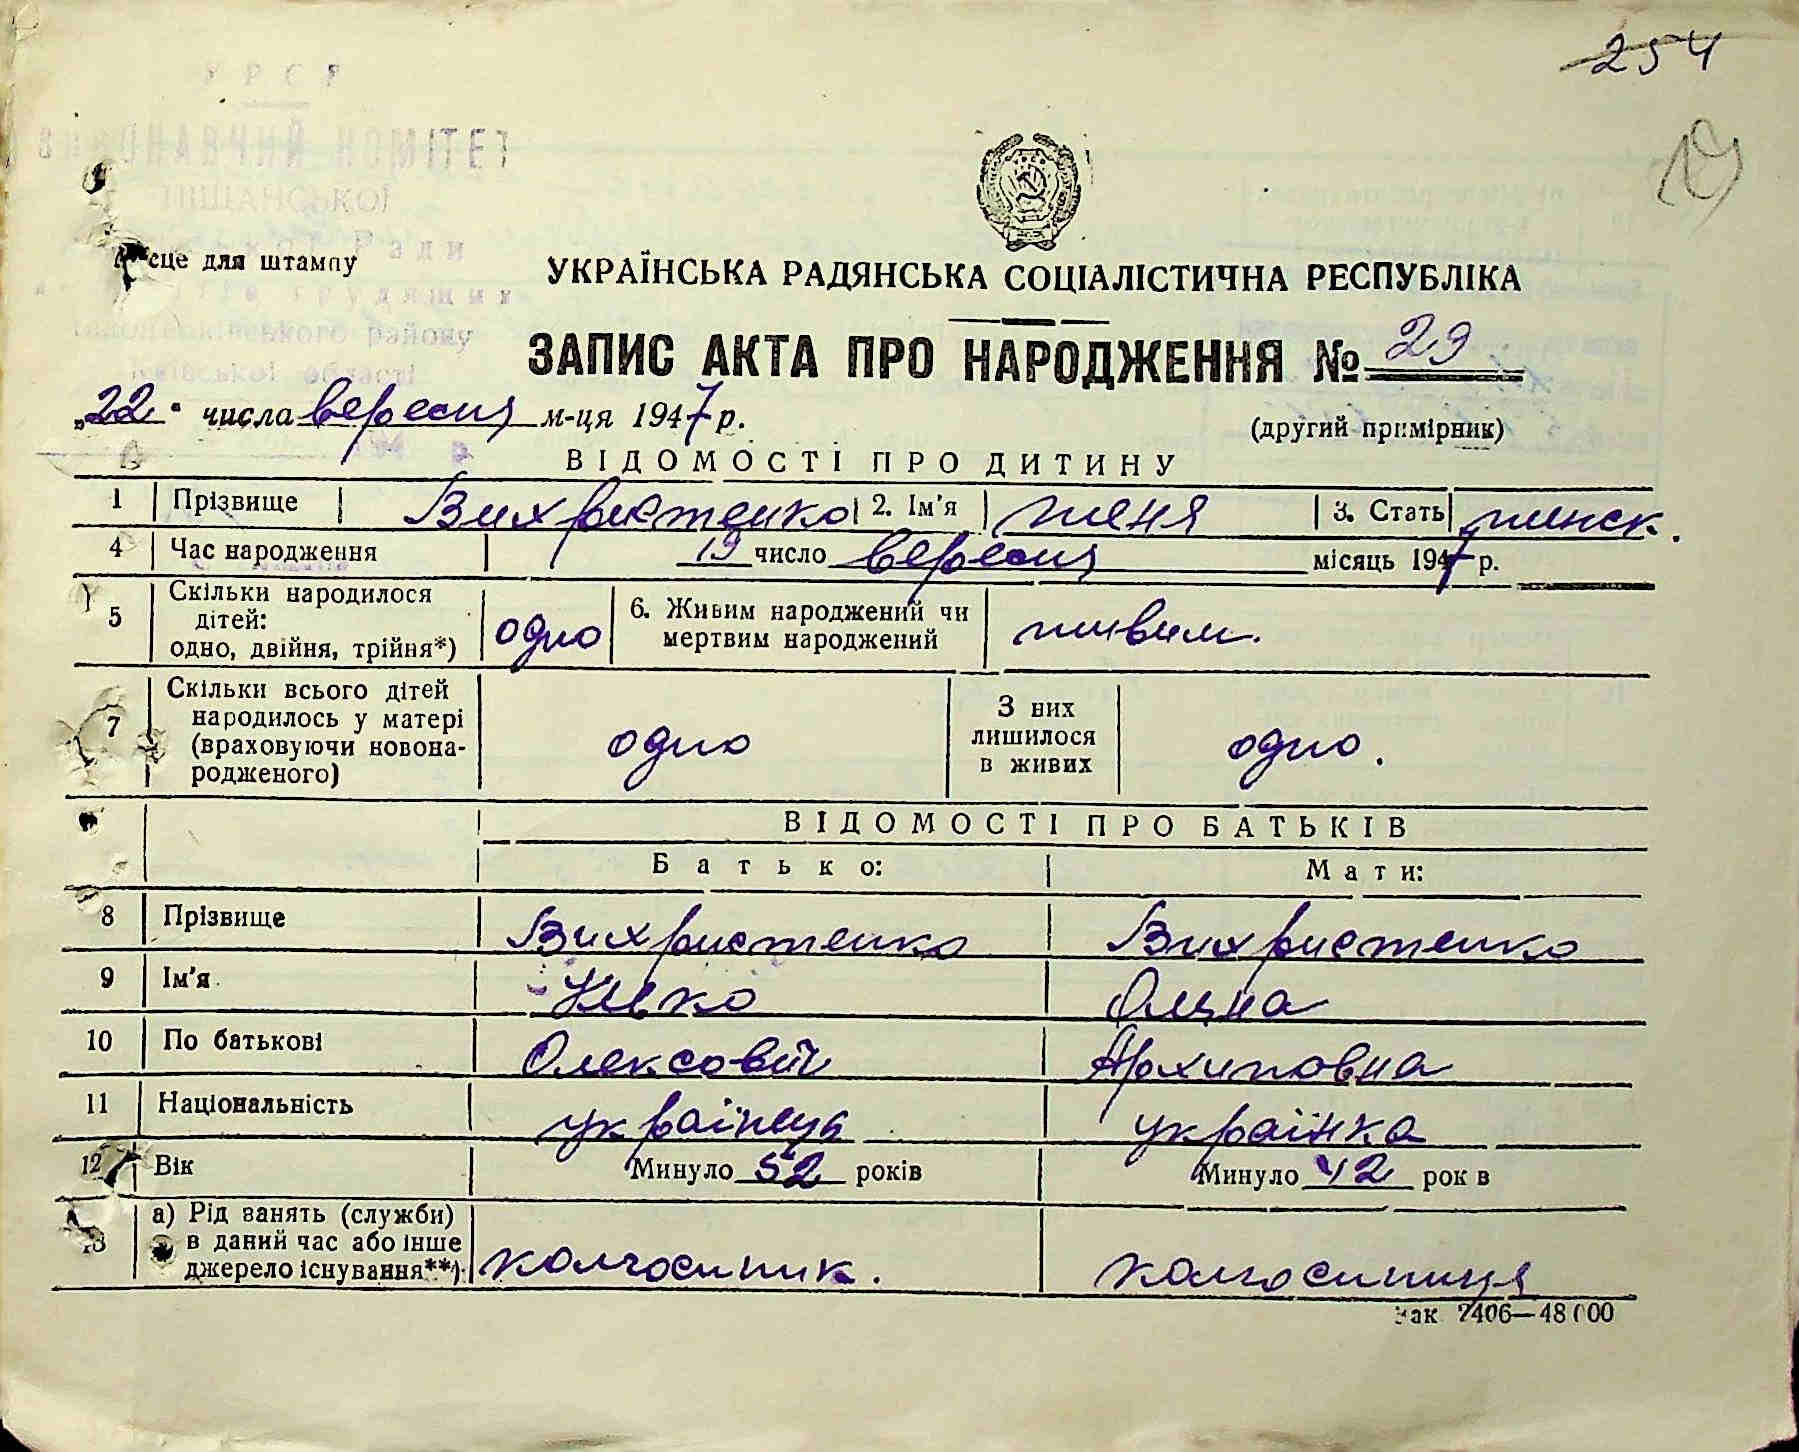 254
19
УРСР
ВИКОНАВЧИЙ КОМІТЕТ
ПІЩАНСЬКОЇ
Ради
трудящих
району
Київської області
Місце для штампу
УКРАЇНСЬКА РАДЯНСЬКА СОЦІАЛІСТИЧНА РЕСПУБЛІКА
ЗАПИС АКТА ПРО НАРОДЖЕННЯ № 29
„22" числа вересня м-ця 1947 р.
(другий примірник)
ВІДОМОСТІ ПРО ДИТИНУ
1 Прізвище Вихристенко 2. Ім'я Женя 3. Стать жінск.
4 Час народження 19 число вересня місяць 1947 р.
5 Скільки народилося дітей: одно, двійня, трійня*) одно 6. Живим народжений чи мертвим народжений живим.
7 Скільки всього дітей народилось у матері (враховуючи новона-родженого) одно З них лишилося в живих одно.
ВІДОМОСТІ ПРО БАТЬКІВ
Батько: Мати:
8 Прізвище Вихристенко Вихристенко
9 Ім'я
10 По батькові Олексович Архиповна
11 Національність українець українка
12 Вік Минуло 52 років Минуло 42 рок в
13 а) Рід занять (служби) в даний час або інше джерело існування**) колгоспник. колгоспниця
Зак 2406—48000